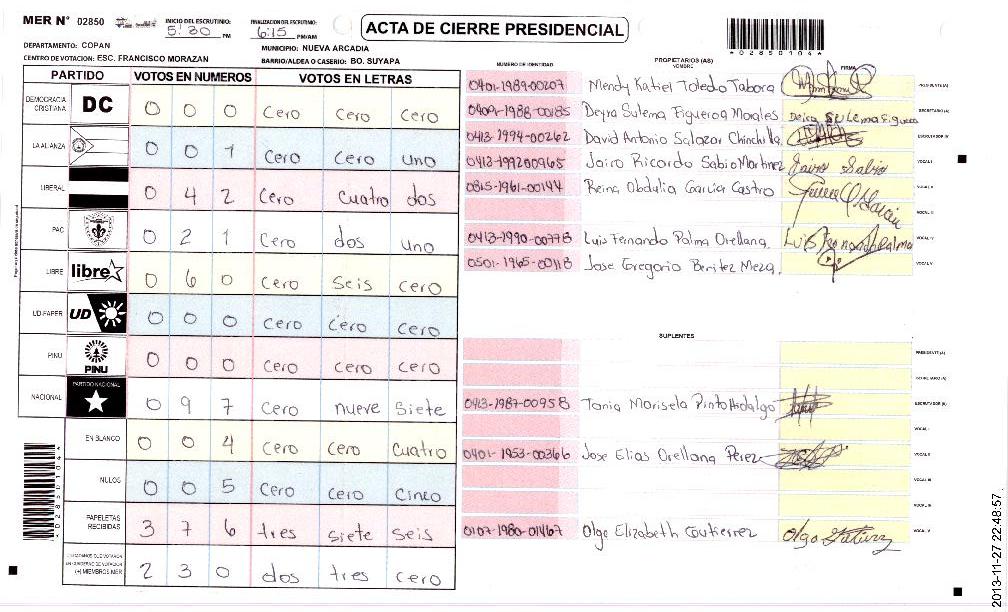 MER N° 02850
INICIO DEL ESCRUTINIO:
5:30 PM
FINALIZACION DEL ESCRUTINIO:
6:15 PM/AM
ACTA DE CIERRE PRESIDENCIAL
*02850104*
DEPARTAMENTO: COPAN
MUNICIPIO: NUEVA ARCADIA
CENTRO DE VOTACION: ESC. FRANCISCO MORAZAN
BARRIO/ALDEA O CASERIO: BO. SUYAPA
PARTIDO VOTOS EN NUMEROS VOTOS EN LETRAS
DEMOCRACIA CRISTIANA DC 0 0 0 Cero Cero Cero
LA ALIANZA 0 0 1 Cero Cero uno
LIBERAL 0 4 2 Cero Cuatro dos
PAC 0 2 1 Cero dos uno
LIBRE libre 0 6 0 Cero Seis cero
UD-FAPER UD 0 0 0 Cero Cero cero
PINU PINU 0 0 0 cero cero cero
NACIONAL PARTIDO NACIONAL 0 9 7 Cero nueve Siete
EN BLANCO 0 0 4 Cero cero Cuatro
NULOS 0 0 5 Cero cero Cinco
PAPELETAS RECIBIDAS 3 7 6 tres siete seis
CIUDADANOS QUE VOTARON EN CUADERNO DE VOTACION (+) MIEMBROS MER 2 3 0 dos tres cero
*02850104*
NUMERO DE IDENTIDAD
PROPIETARIOS (AS)
NOMBRE
FIRMA
0401-1989-00207 Mendy Katiel Toledo Tabora PRESIDENTE(A)
0409-1988-00185 Deyra Sulema Figueroa Morales Deira Sulema Figueroa SECRETARIO(A)
0413-1994-00262 David Antonio Salazar Chinchilla ESCRUTADOR(A)
0413-1992-00965 Jairo Ricardo Sabio Martinez Jairo Sabio VOCAL I
0815-1961-00144 Reina Obdulia Garcia Castro VOCAL II
VOCAL III
0413-1990-00778 Luis Fernando Palma Orellana. Luis Fernando Palma VOCAL IV
0501-1965-00118 Jose Gregorio Benitez Meza. VOCAL V
SUPLENTES
PRESIDENTE(A)
SECRETARIO(A)
0413-1987-00958 Tania Marisela Pinto Hidalgo ESCRUTADOR(A)
VOCAL I
0401-1953-00366 Jose Elias Orellana Perez VOCAL II
VOCAL III
VOCAL IV
0107-1980-01467 Olga Elizabeth Gutierrez Olga Gutierrez VOCAL V
2013-11-27 22:48:57